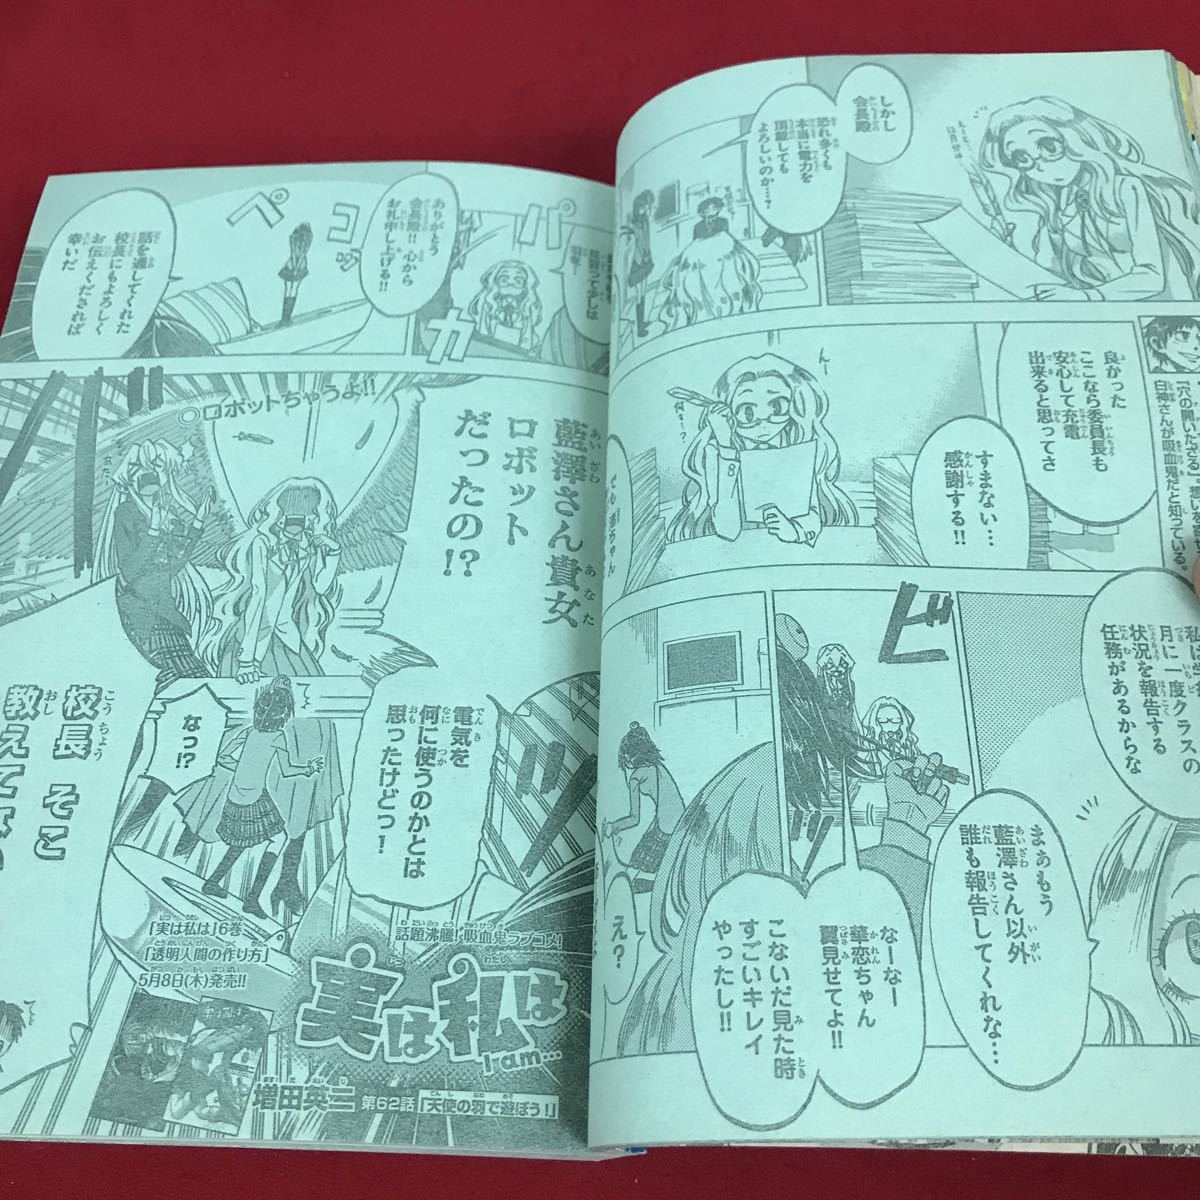 しかし
会長殿
恐れ多くも
本当に電力を
頂戴しても
よろしいのか…?
良かった
ここなら委員長も
安心して充電
出来ると思ってさ
すまない…
感謝する!!
んー
何な…?
「穴の開いたざる」。
白神さんが吸血鬼だと知っている。
月に一度クラスの
状況を報告する
任務があるからな
まぁもう
藍澤さん以外
誰も報告してくれな…
ビ
なーなー
華恋ちゃん
翼見せてよ!!
こないだ見た時
すごいキレイ
やったし!!
え?
パ
カ
ペ
コッ
ありがとう
会長殿!! 心から
お礼申し上げる!!
話を通してくれた
校長にもよろしく
お伝えくだされば
幸いだ
藍澤さん貴女
ロボット
だったの!?
◎ロボットちゃうよ!!
あた
電気を
何に使うのかとは
思ったけどっ!
なっ!?
校長 そこ
話題沸騰!吸血鬼ラブコメ!
実は私は
I am…
増田英二 第62話 「天使の羽で遊ぼう!」
「実は私は」6巻
「透明人間の作り方」
5月8日(木)発売!!